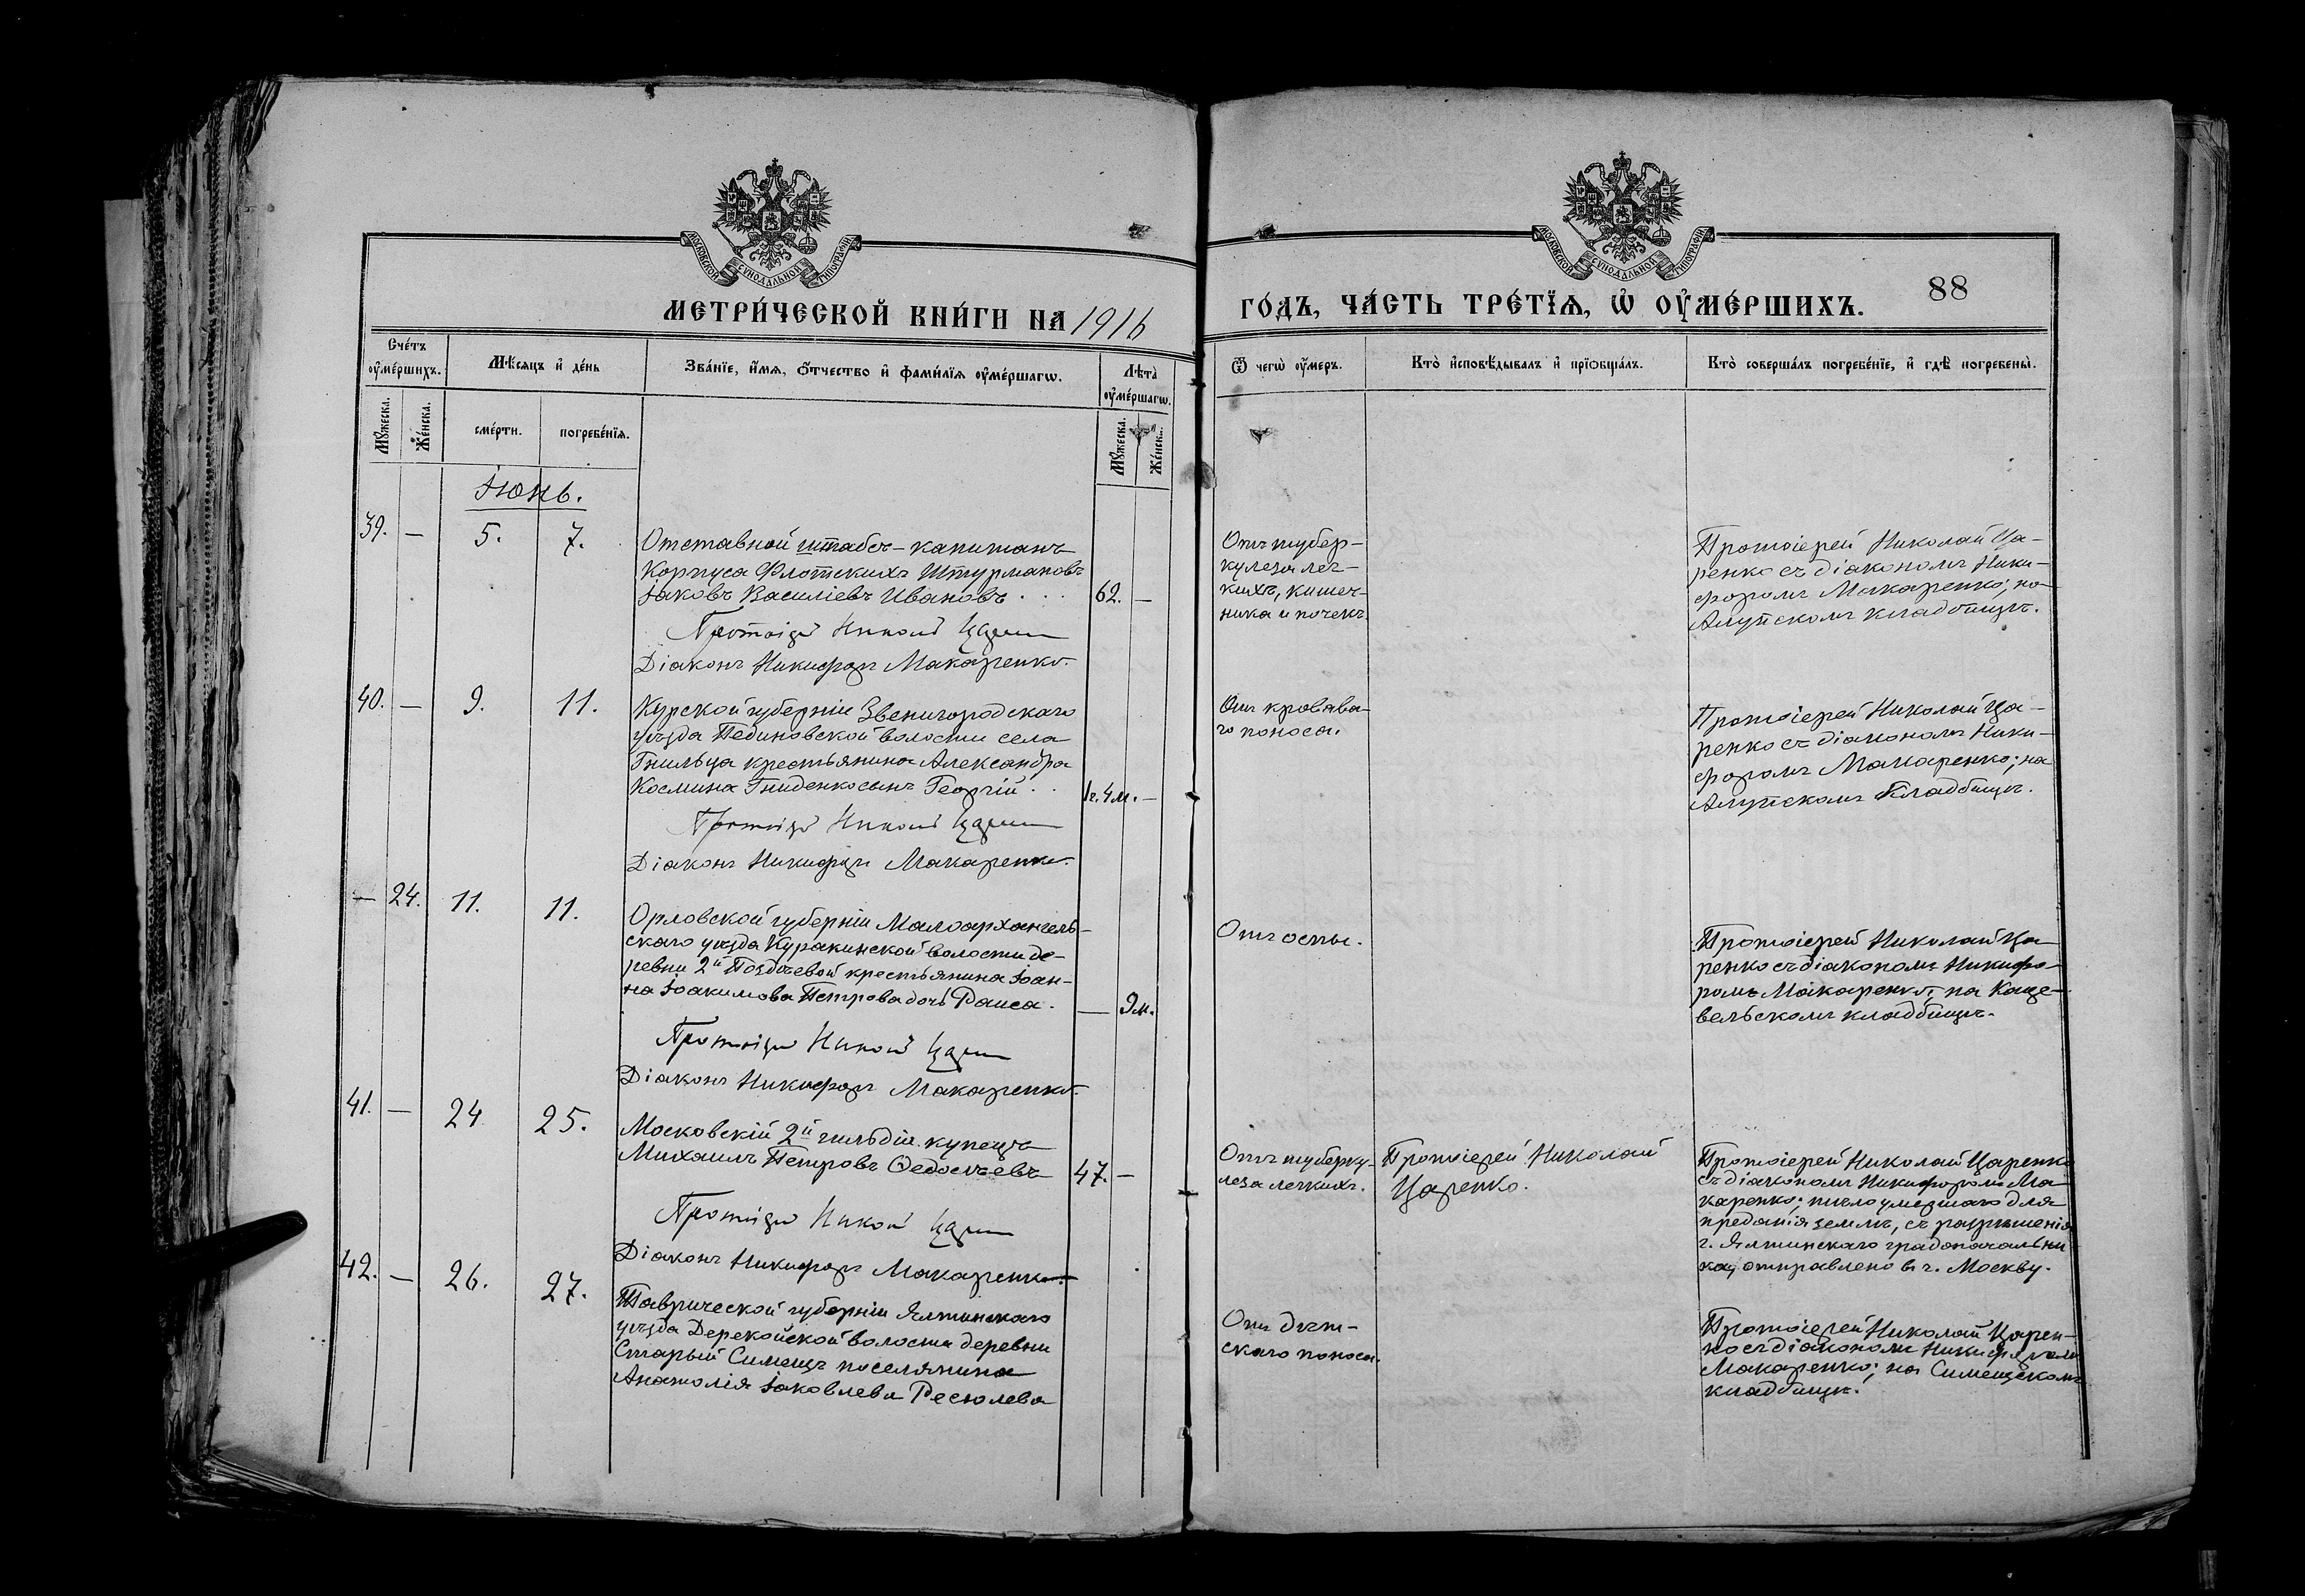 МОСКОВСКОЙ СУНОДАЛЬНОЙ ТИПОГРАФІИ
МОСКОВСКОЙ СУНОДАЛЬНОЙ ТИПОГРАФІИ
МЕТРИ́ЧЕСКОЙ КНИ́ГИ НА 1916
ГО́ДЪ, ЧА́СТЬ ТРЕ́ТЇѦ, Ѽ ОУ҆МЕ́РШИХЪ.
88
Сче́тъ
оу҆ме́ршихъ.
Мѣ́сяцъ и҆ де́нь
Зва́нїе, и҆́мѧ, ѻ҆́тчество и҆ фами́лїѧ оу҆ме́ршагѡ.
Лѣ́та
оу҆ме́ршагѡ.
Ѿ чегѡ̀ оу҆́меръ.
Кто̀ и҆сповѣ́дывалъ и҆ прїѻбща́лъ.
Кто̀ соверша́лъ погребе́нїе, и҆ гдѣ̀ погребены̀.
Мꙋ́жеска.
Же́нска.
сме́рти.
погребе́нїѧ.
Мꙋ́жеска.
Же́нск.
Іюнь.
39.
—
5.
7.
Отставной штабсъ-капитанъ
Корпуса Флотскихъ Штурмановъ
Іаковъ Василіевъ Ивановъ . . .
62. —
Протоіерей Николай Царенко
Діаконъ Никифоръ Макаренко.
Отъ тубер-
кулеза лег-
кихъ, кишеч-
ника и почекъ.
Протоіерей Николай Ца-
ренко съ діакономъ Ники-
форомъ Макаренко; на
Алупскомъ кладбищѣ.
40.
—
9.
11.
Курской губерніи Звенигородскаго
уѣзда Пединовской волости села
Гнильца крестьянина Александра
Космина Гниденко сынъ Георгій . .
1г. 4м. —
Протоіерей Николай Царенко
Діаконъ Никифоръ Макаренко.
Отъ кровава-
го поноса.
Протоіерей Николай Ца-
ренко съ діакономъ Ники-
форомъ Макаренко; на
Алупскомъ кладбищѣ.
—
24.
11.
11.
Орловской губерніи Малоархангель-
скаго уѣзда Куракинской волости де-
ревни 2й Поздѣевой крестьянина Іоан-
на Іоакимова Петрова дочь Раиса.
— 9м.
Протоіерей Николай Царенко
Діаконъ Никифоръ Макаренко.
Отъ оспы.
Протоіерей Николай Ца-
ренко съ діакономъ Никифо-
ромъ Макаренко; на Каце-
вельскомъ кладбищѣ.
41.
—
24
25.
Московскій 2й гильдіи купецъ
Михаилъ Петровъ Ѳедосѣевъ
47. —
Протоіерей Николай Царенко
Діаконъ Никифоръ Макаренко.
Отъ туберку-
леза легкихъ.
Протоіерей Николай
Царенко.
Протоіерей Николай Царенко
съ діакономъ Никифоромъ Ма-
каренко; тѣло умершаго для
преданія землѣ, съ разрѣшенія
г. Ялтинскаго градоначальни-
ка, отправлено въ г. Москву.
42.
—
26.
27.
Таврической губерніи Ялтинскаго
уѣзда Дерекойской волости деревни
Старый Симеизъ поселянина
Анатолія Іаковлева Ресюлева
Отъ дѣт-
скаго поноса.
Протоіерей Николай Царен-
ко съ діакономъ Никифоромъ
Макаренко; на Симеизскомъ
кладбищѣ.